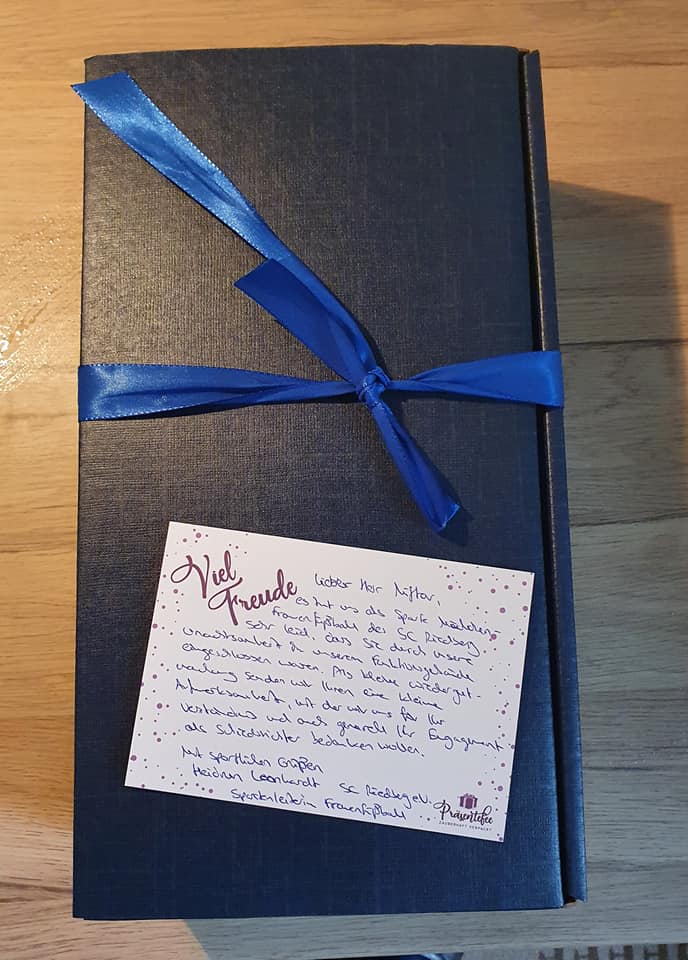 Viel
Freude
Lieber Herr
es tut uns als Sparte Mädchen-
Frauenfußball des SC Riedberg
sehr leid, dass Sie durch unsere
Unachtsamkeit in unserem Funktionsgebäude
eingeschlossen waren. Als kleine Wiedergut-
machung senden wir Ihnen eine kleine
Aufmerksamkeit, mit der wir uns für Ihr
Verständnis und auch generell Ihr Engagement
als Schiedsrichter bedanken wollen.
Mit sportlichen Grüßen
Heidrun Leonhardt SC
Spartenleiterin Frauenfußball
Präsentefee
ZAUBERHAFT VERPACKT